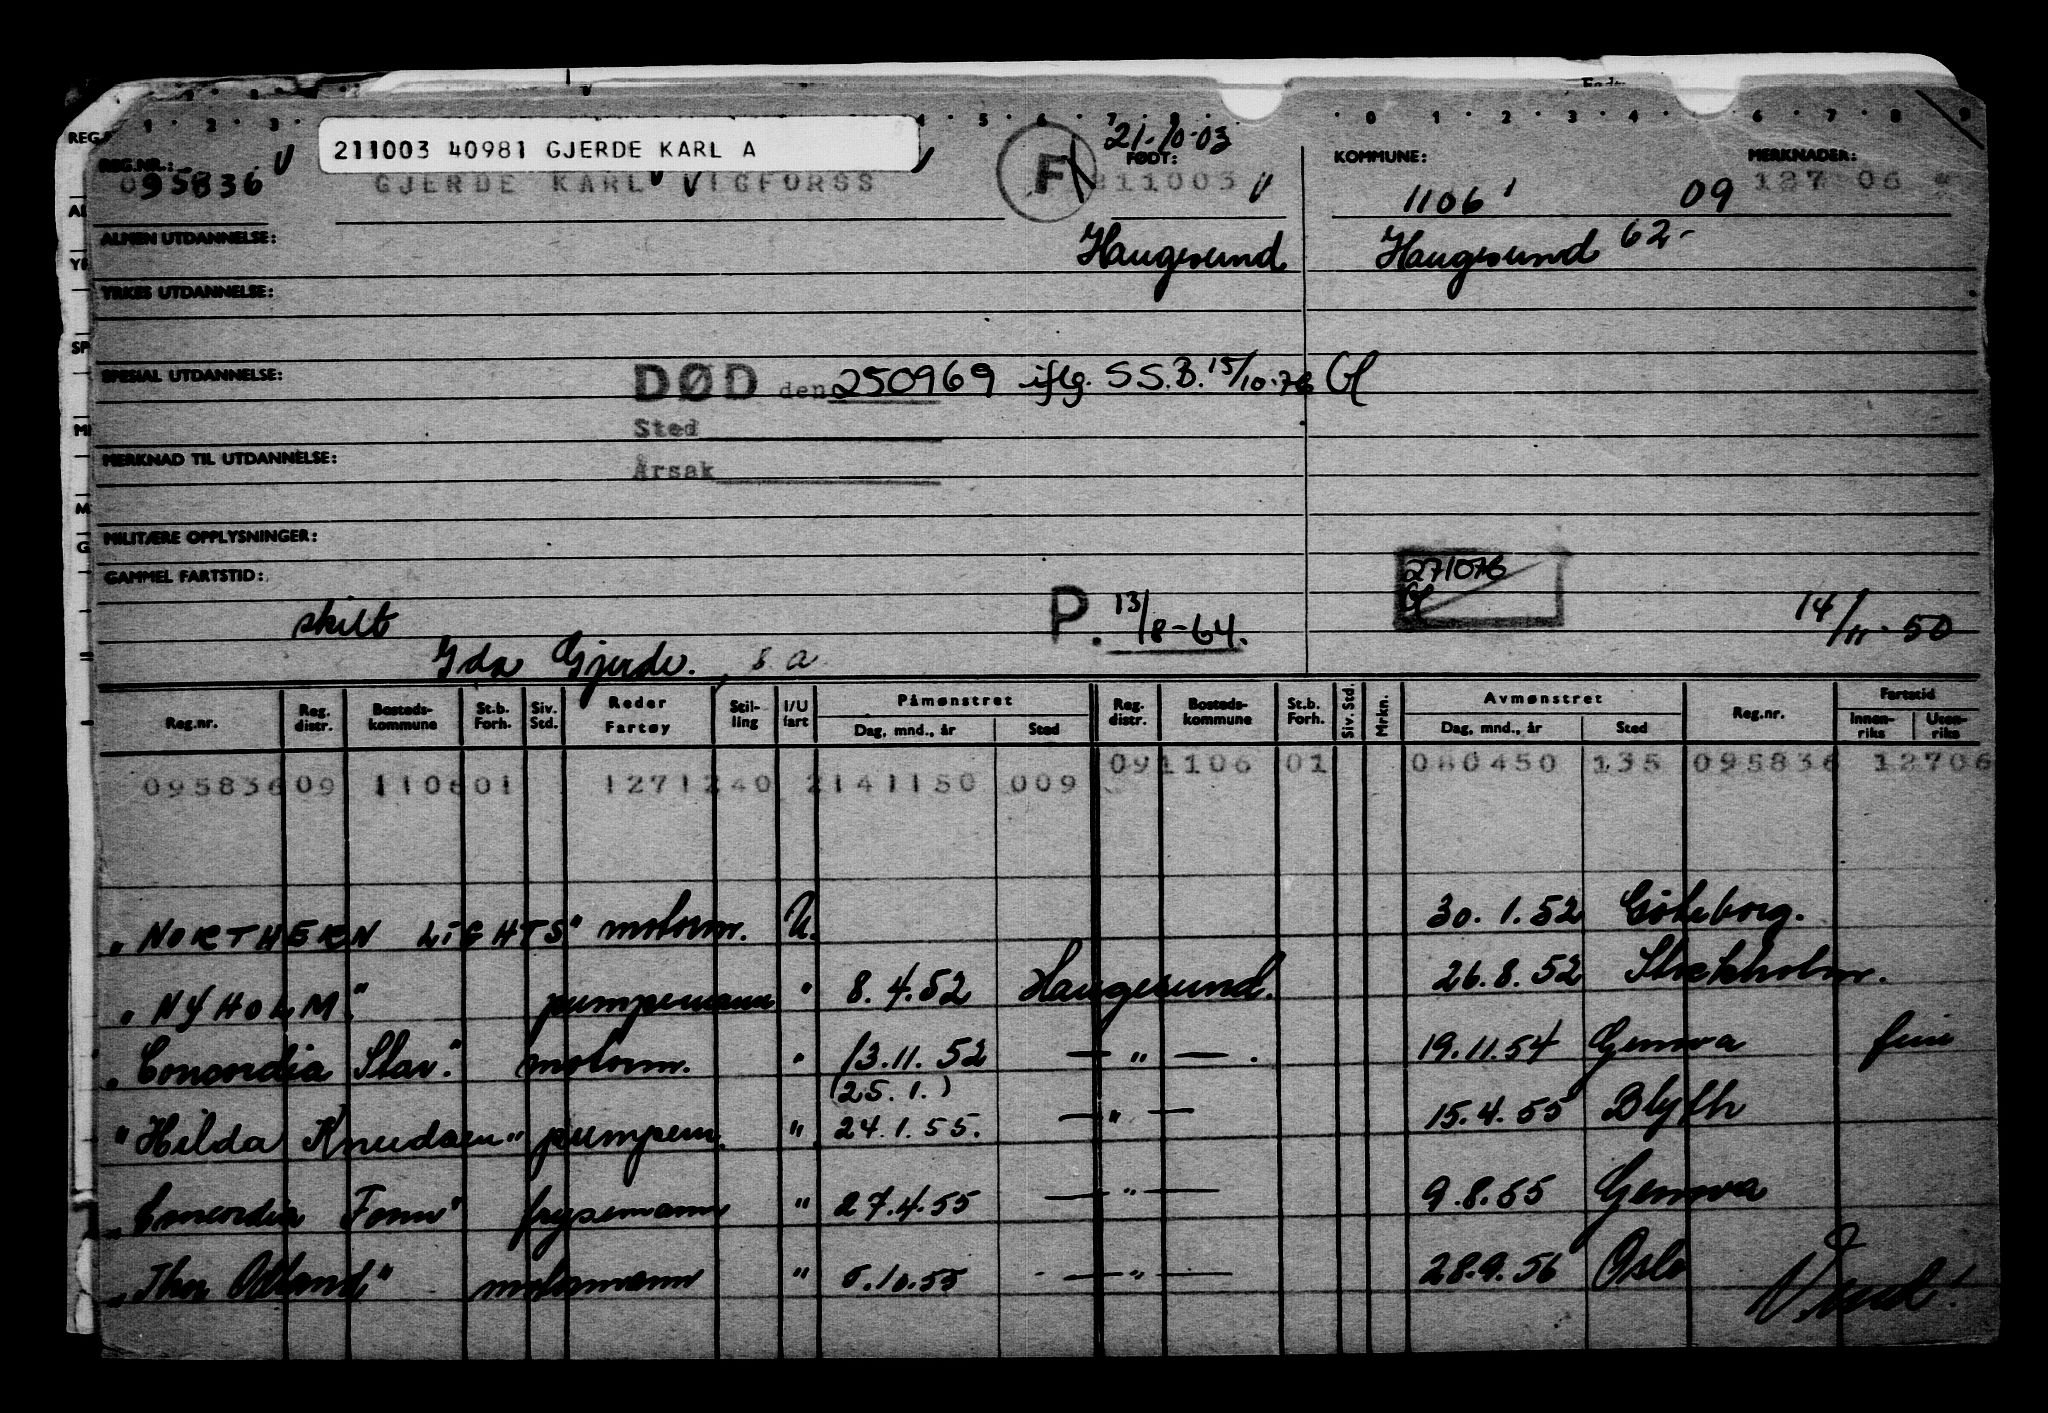 211003 40981 GJERDE KARL A
21.10.03
REG.NR.: FØDT: KOMMUNE: MERKNADER:
095836 GJERDE KARL VIGFORSS F 211003 1106 09 127 06
ALMEN UTDANNELSE: Haugesund Haugesund 62-
YRKES UTDANNELSE:
SPESIAL UTDANNELSE: DØD den 250969 iflg. S.S.B. 15/10-76
Sted
MERKNAD TIL UTDANNELSE:
Årsak
MILITÆRE OPPLYSNINGER:
GAMMEL FARTSTID: 271076
skilt P. 13/8-64. 14/11-50
Ida Gjerde.
Reg.nr. Reg. distr. Bosteds-kommune St.b. Forh. Siv. Std. Reder Fartøy Stil-ling I/U fart Påmønstret Dag, mnd., år Sted Reg. distr. Bosteds-kommune St.b. Forh. Siv. Std. Mrkn. Avmønstret Dag, mnd., år Sted Reg.nr. Fartstid Innen-riks Uten-riks
095836 09 1106 01 1271240 2 141150 009 09 1106 01 080450 135 095836 12706
"NORTHERN LIGHTS" motorm. U. 30.1.52 Göteborg.
"NYHOLM" pumpemann " 8.4.52 Haugesund. 26.8.52 Stockholm.
"Concordia Star" motorm. " 13.11.52 — " — 19.11.54 Genova
(25.1.)
"Hilda Knudsen" pumpem. " 24.1.55. — " — 15.4.55 Blyth
"Concordia Fonn" frysemann " 27.4.55 — " — 9.8.55 Genova
"Thor Odland" motormann " 5.10.55 — " — 28.9.56 Oslo